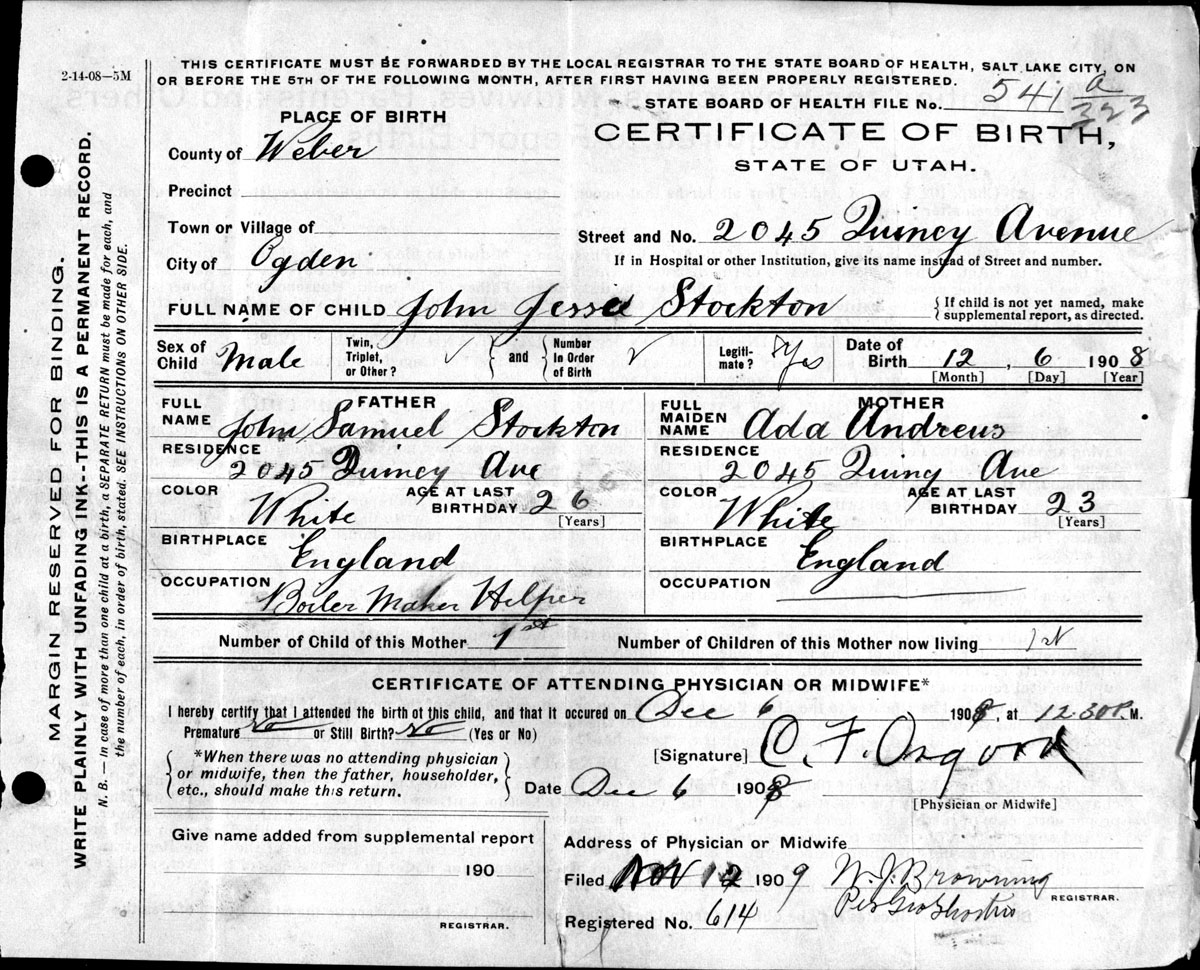 2-14-08—5M
THIS CERTIFICATE MUST BE FORWARDED BY THE LOCAL REGISTRAR TO THE STATE BOARD OF HEALTH, SALT LAKE CITY, ON
OR BEFORE THE 5TH OF THE FOLLOWING MONTH, AFTER FIRST HAVING BEEN PROPERLY REGISTERED.
STATE BOARD OF HEALTH FILE No. 541 a
323
PLACE OF BIRTH
CERTIFICATE OF BIRTH,
STATE OF UTAH.
County of Weber
Precinct
Town or Village of
Street and No. 2045 Quincy Avenue
City of Ogden
If in Hospital or other Institution, give its name instead of Street and number.
FULL NAME OF CHILD John Jesse Stockton
{ If child is not yet named, make
supplemental report, as directed.
Sex of Child Male
Twin, Triplet, or Other? ✓ } and { Number In Order of Birth ✓
Legiti-mate? Yes
Date of Birth 12, 6 1908
[Month] [Day] [Year]
FATHER
FULL NAME John Samuel Stockton
RESIDENCE 2045 Quincy Ave
COLOR White
AGE AT LAST BIRTHDAY 26
[Years]
BIRTHPLACE England
OCCUPATION Boiler Maker Helper
MOTHER
FULL MAIDEN NAME Ada Andrews
RESIDENCE 2045 Quincy Ave
COLOR White
AGE AT LAST BIRTHDAY 23
[Years]
BIRTHPLACE England
OCCUPATION
Number of Child of this Mother 1st
Number of Children of this Mother now living 1st
CERTIFICATE OF ATTENDING PHYSICIAN OR MIDWIFE*
I hereby certify that I attended the birth of this child, and that it occured on Dec 6 1908, at 12.30 P.M.
Premature no or Still Birth? no (Yes or No)
*When there was no attending physician
or midwife, then the father, householder,
etc., should make this return.
[Signature] C. F. Osgood
Date Dec 6 1908
[Physician or Midwife]
Give name added from supplemental report
190
REGISTRAR.
Address of Physician or Midwife
Filed NOV 12 1909 W. J. Browning
Per Geo Shorten
REGISTRAR.
Registered No. 614
MARGIN RESERVED FOR BINDING.
WRITE PLAINLY WITH UNFADING INK--THIS IS A PERMANENT RECORD.
N. B. — In case of more than one child at a birth, a SEPARATE RETURN must be made for each, and
the number of each, in order of birth, stated. SEE INSTRUCTIONS ON OTHER SIDE.